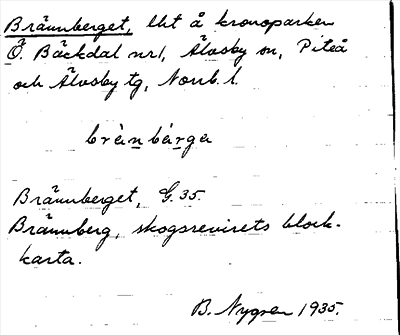 Brännberget, lht å kronoparken
Ö. Bäckdal nr1, Älvsby sn, Piteå
och Älvsby tg, Norrb. l.
brä̀nbárga
Brännberget, G. 35.
Brännberg, skogsrevirets block-
karta.
B. Nygren 1935.